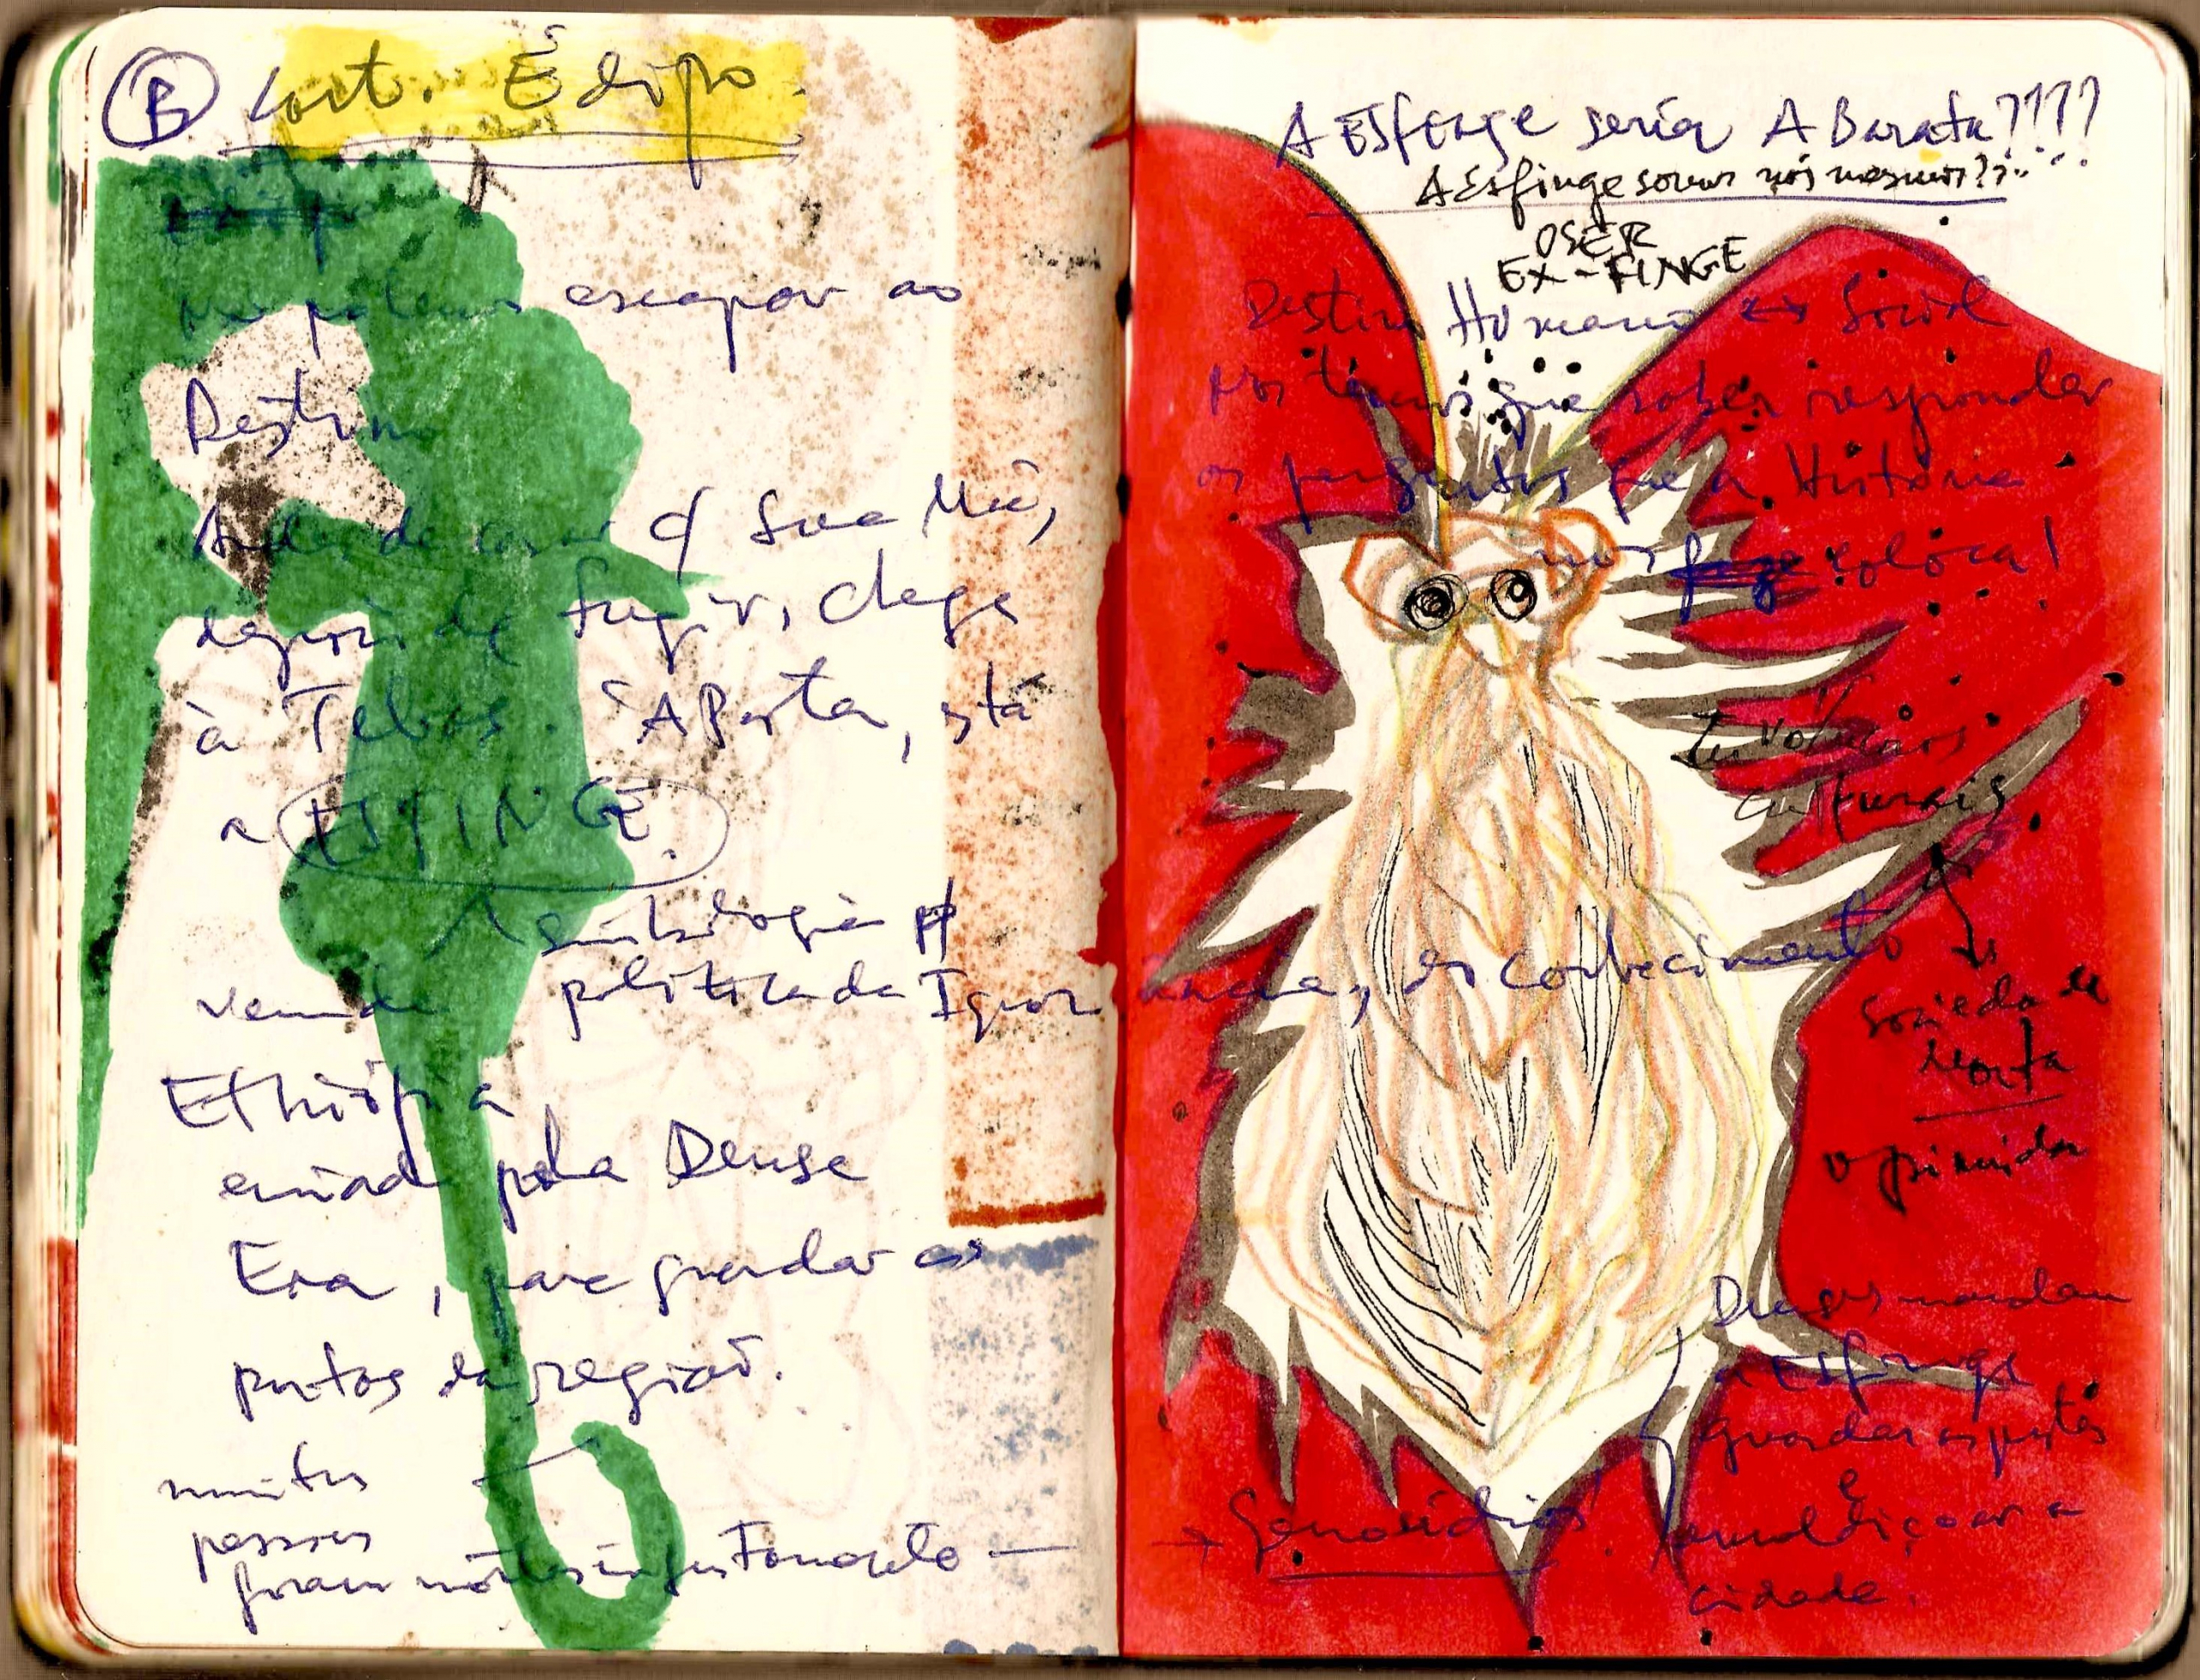 B cont. Édipo.
podemos escapar ao
Destino
depois de fugir, chega
à Tebas. À Porta, está
a ESFINGE.
simbologia p/
vem da política da Ignorância, desconhecimento
Ethiópia
enviada pela Deusa
Era, para guardar as
portas da região.
muitas
pessoas
foram mortas injustamente —
A ESfinge seria A Barata????
A Esfinge somos nós mesmos??
O SER
EX-FINGE
Destino Humano ↔ Social
nós temos que saber responder
as perguntas que a História
nos coloca!
culturais
Sociedade
morta
oprimida
Deuses mandam
a Esfinge
guardar as portas
e
amaldiçoar a
cidade.
→ Genosídios!